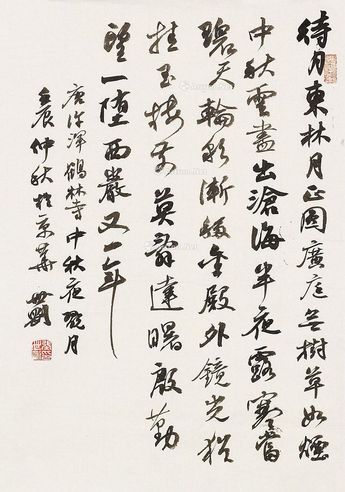 待月東林月正圓廣庭无樹草如煙
中秋雲盡出滄海半夜露寒當
碧天輪彩漸移金殿外鏡光猶
挂玉樓前莫辭達曙殷勤
望一墮西巖又一年
唐許渾鶴林寺中秋夜玩月
壬辰仲秋於京華 世劉